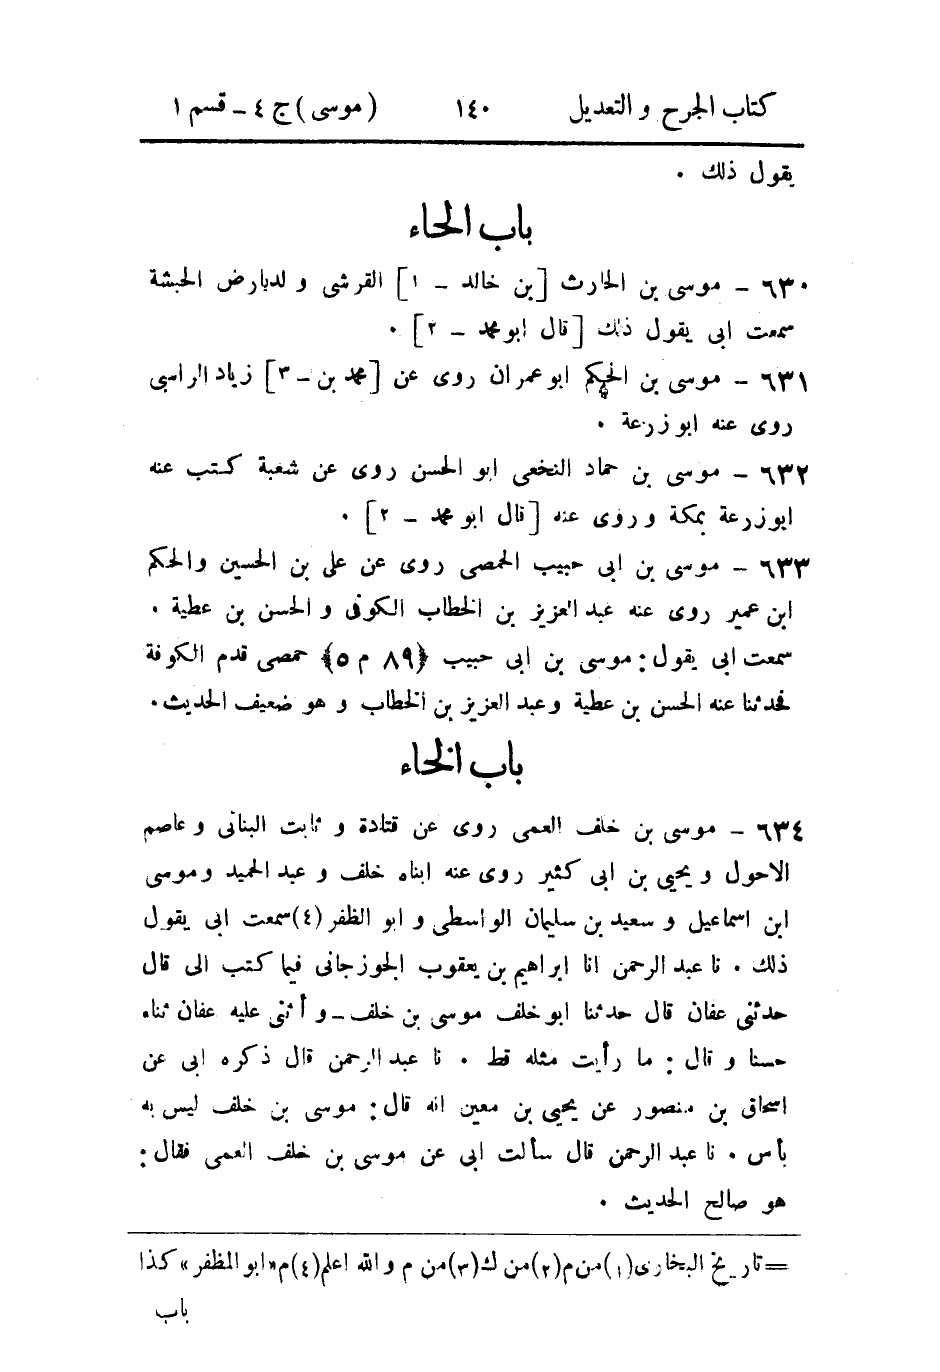 كتاب الجرح و التعديل ١٤٠ (موسى) ج ٤ - قسم ١
يقول ذلك .
باب الحاء
٦٣٠ - موسى بن الحارث [بن خالد - ١] القرشى و لدبارض الحبشة
سمعت ابى يقول ذلك [قال ابو محمد - ٢] .
٦٣١ - موسى بن الحكم ابو عمران روى عن [محمد بن - ٣] زياد الراسبى
روى عنه ابو زرعة .
٦٣٢ - موسى بن حماد النخعى ابو الحسن روى عن شعبة كتب عنه
ابوزرعة بمكة وروى عنه [قال ابو محمد - ٢] .
٦٣٣ - موسى بن ابى حبيب الحمصى روى عن على بن الحسين والحكم
ابن عمير روى عنه عبد العزيز بن الخطاب الكوفى و الحسن بن عطية .
سمعت ابى يقول : موسى بن ابى حبيب ﴿٨٩ م ٥﴾ حمصى قدم الكوفة
فحدثنا عنه الحسن بن عطية وعبد العزيز بن الخطاب و هو ضعيف الحديث .
باب الخاء
٦٣٤ - موسى بن خلف العمى روى عن قتادة و ثابت البنانى و عاصم
الاحول و يحيى بن ابى كثير روى عنه ابناه خلف و عبد الحميد وموسى
ابن اسماعيل و سعيد بن سليمان الواسطى و ابو الظفر (٤) سمعت ابى يقول
ذلك . نا عبد الرحمن انا ابراهيم بن يعقوب الجوزجانى فيما كتب الى قال
حدثنى عفان قال حدثنا ابو خلف موسى بن خلف - و أثنى عليه عفان ثناء
حسنا و قال : ما رأيت مثله قط . نا عبد الرحمن قال ذكره ابى عن
اسحاق بن منصور عن يحيى بن معين انه قال : موسى بن خلف ليس به
بأس . نا عبد الرحمن قال سألت ابى عن موسى بن خلف العمى فقال :
هو صالح الحديث .
= تاريخ البخارى (١) من م (٢) من ك (٣) من م و الله اعلم (٤) م « ابو المظفر » كذا
باب